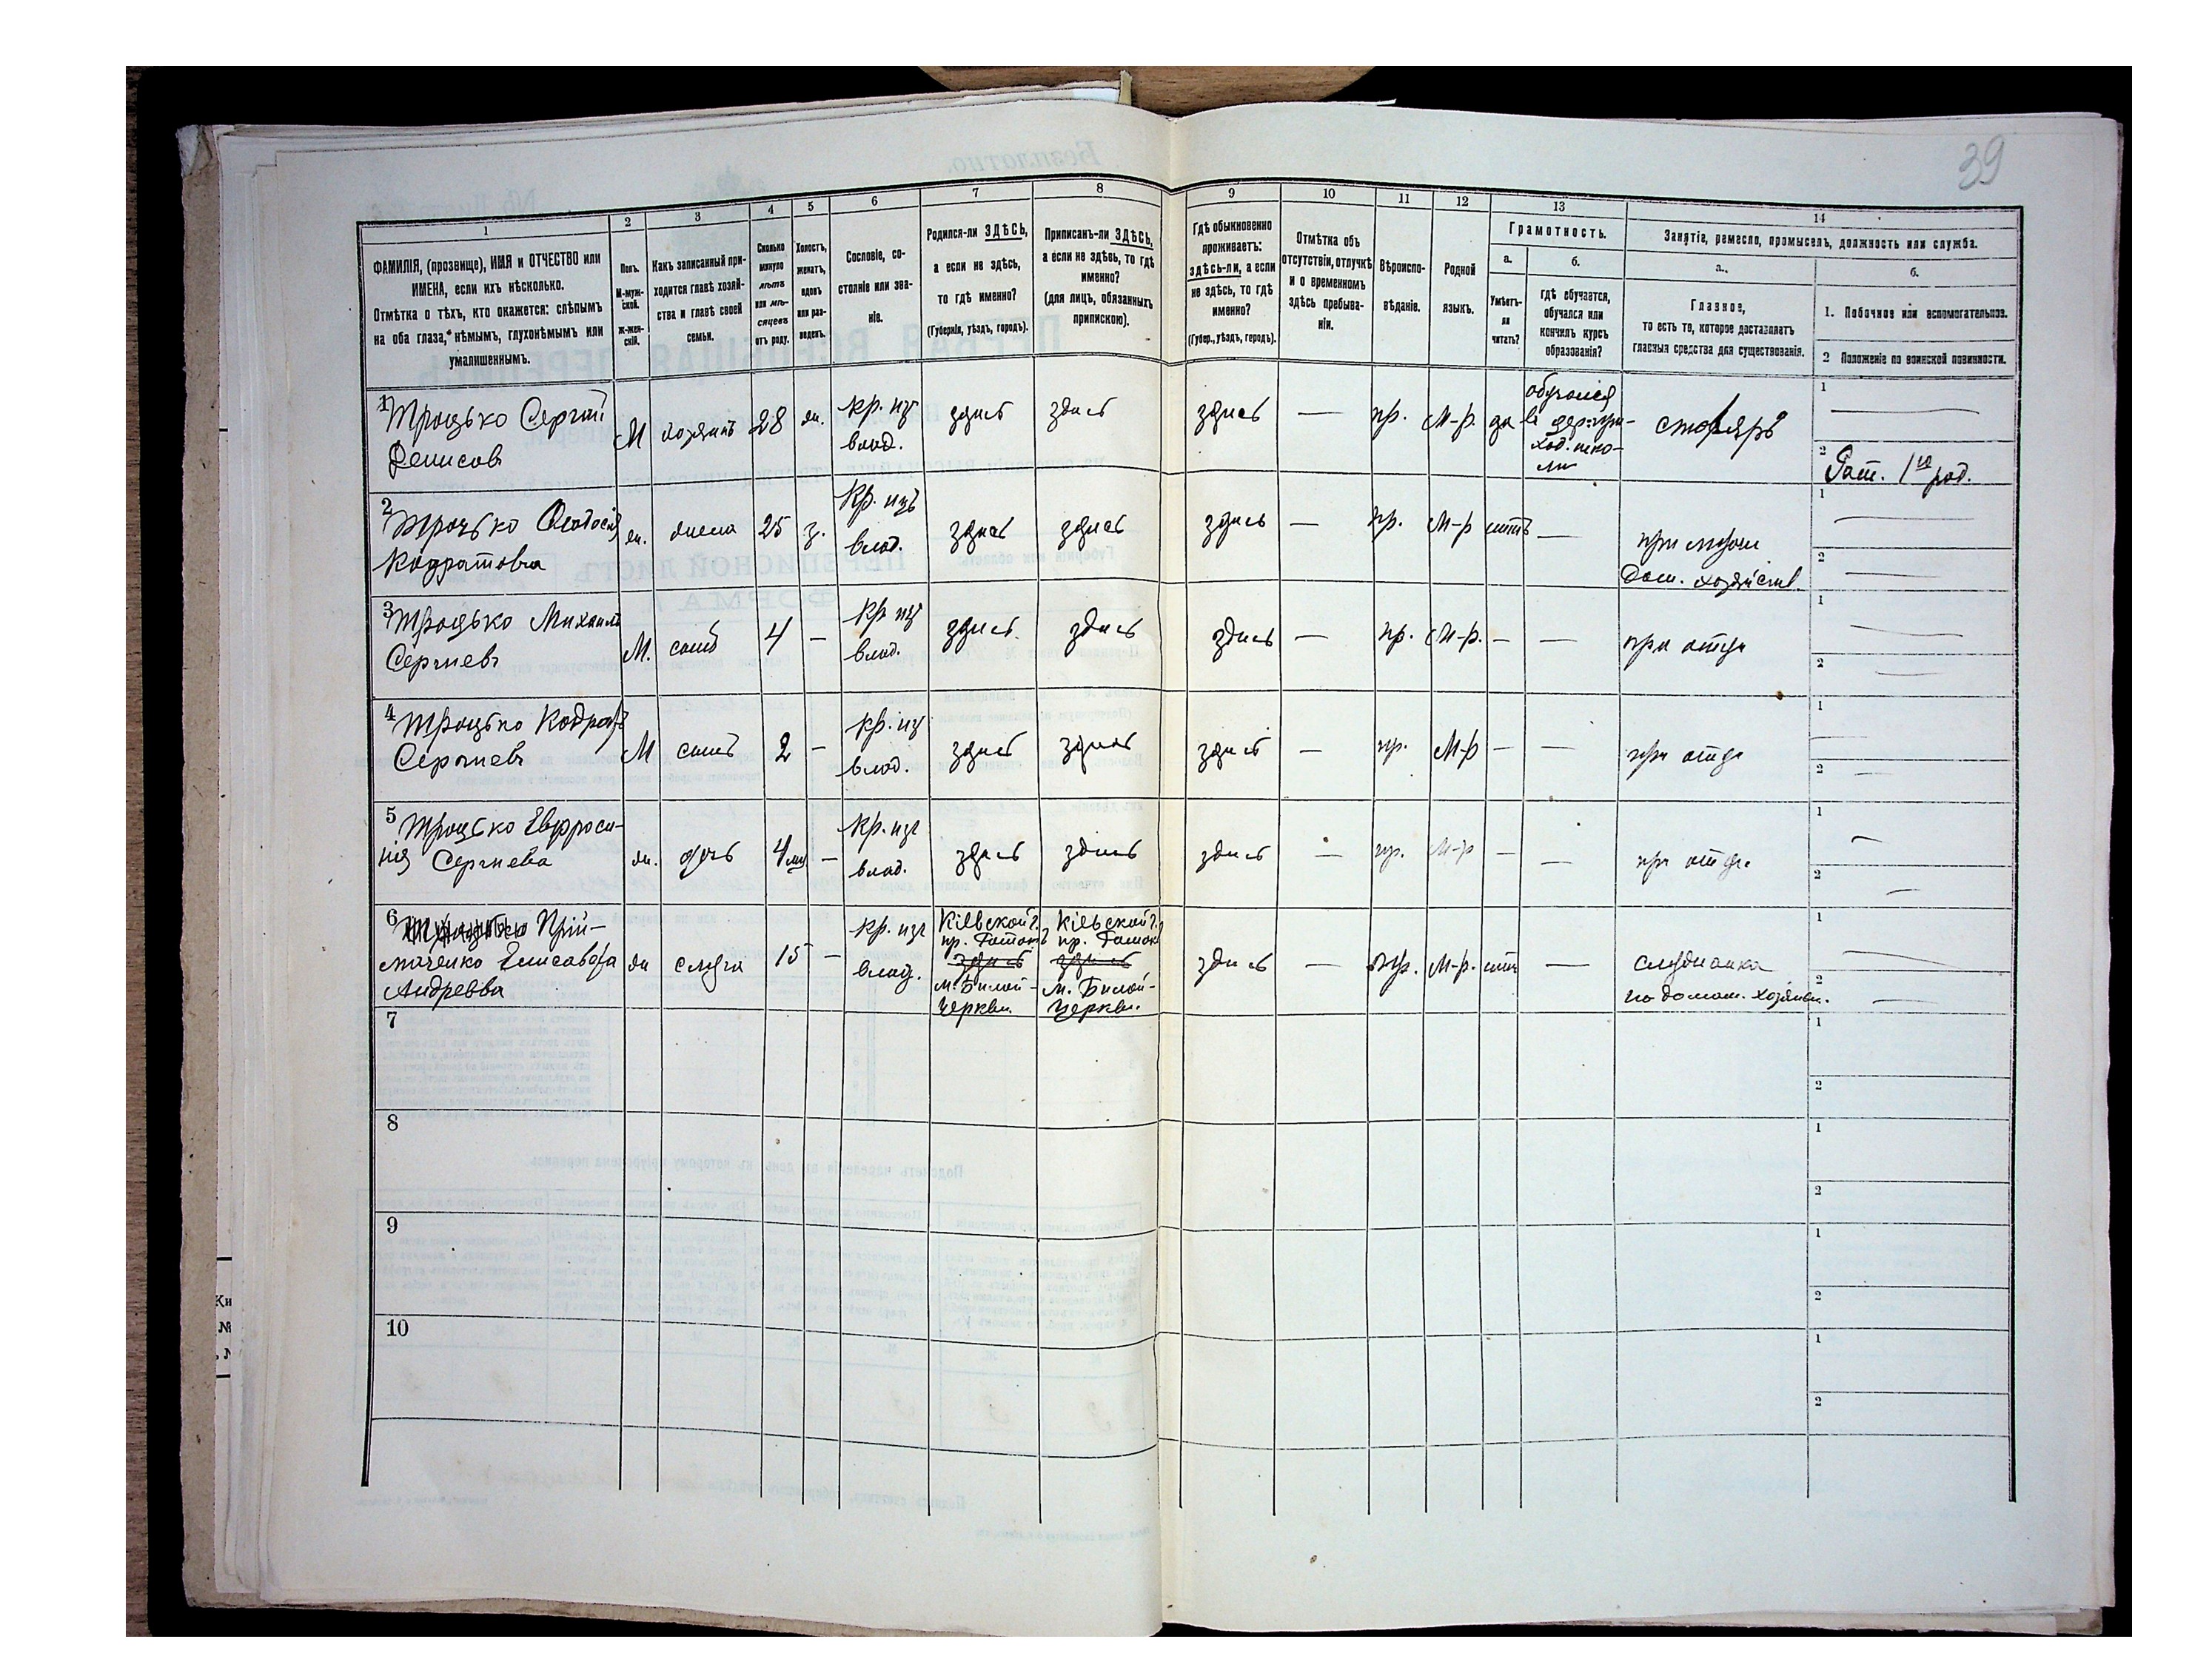 39
1 2 3 4 5 6 7 8 9 10 11 12 13 14
ФАМИЛІЯ, (прозвище), ИМЯ и ОТЧЕСТВО или
ИМЕНА, если ихъ нѣсколько.
Отмѣтка о тѣхъ, кто окажется: слѣпымъ
на оба глаза, нѣмымъ, глухонѣмымъ или
умалишеннымъ.
Полъ.
М-муж-
ской.
ж-жен-
скій.
Какъ записанный при-
ходится главѣ хозяй-
ства и главѣ своей
семьи.
Сколько
минуло
лѣтъ
или мѣ-
сяцевъ
отъ роду.
Холостъ,
женатъ,
вдовъ
или раз-
веденъ.
Сословіе, со-
стояніе или зва-
ніе.
Родился-ли ЗДѢСЬ,
а если не здѣсь,
то гдѣ именно?
(Губернія, уѣздъ, городъ).
Приписанъ-ли ЗДѢСЬ,
а если не здѣсь, то гдѣ
именно?
(для лицъ, обязанныхъ
припискою).
Гдѣ обыкновенно
проживаетъ:
здѣсь-ли, а если
не здѣсь, то гдѣ
именно?
(Губер., уѣздъ, городъ).
Отмѣтка объ
отсутствіи, отлучкѣ
и о временномъ
здѣсь пребыва-
ніи.
Вѣроиспо-
вѣданіе.
Родной
языкъ.
Грамотность.
а.
Умѣетъ-
ли
читать?
б.
гдѣ обучается,
обучался или
кончилъ курсъ
образованія?
Занятіе, ремесло, промыселъ, должность или служба.
а.
Главное,
то есть то, которое доставляетъ
главныя средства для существованія.
б.
1. Побочное или вспомогательное.
2 Положеніе по воинской повинности.
1 Троцько Сергій
Денисов
М хозяинъ 28 ж. кр. из
влад.
здись здись здись — пр. М-р. да
обучался
в церк.-при-
ход. шко-
ли
столяръ
1 —
2 Рат. 1го род.
2 Троцько Феодосія
Кодратовна
ж. жена 25 з. Кр. изъ
влад.
здись здись здись — пр. М-р нитъ —
при мужи
дом. хозяйств.
1 —
2 —
3 Троцько Михаилъ
Сергиев
М. синъ 4 — кр из
влад.
здись здись здись — пр. М-р. — —
при отци
1 —
2 —
4 Троцько Кодратъ
Сергиев
М синъ 2 — кр. из
влад.
здись здись здись — пр. М-р — —
при отци
1 —
2 —
5 Троцько Евфроси-
нія Сергиева
ж. дочь 4 мц — кр. из
влад.
здись здись здись — пр. М-р — —
при отци
1 —
2 —
6 Троцько Прій-
маченко Елисавета
Андреева
ж слуга 15 — кр. из
влад.
Кіевской г.
здись
м. Билой-
Церкви.
Кіевской г.
здись
м. Билой-
Церкви.
здись — пр. М-р. нитъ —
служанка
по домаш. хозяйст.
1 —
2 —
7
1
2
8
1
2
9
1
2
10
1
2